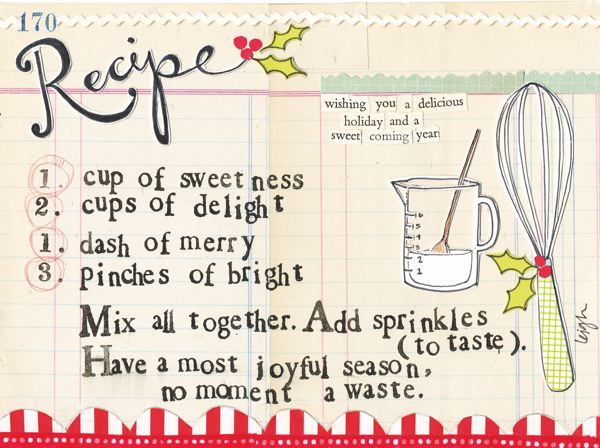 170
Recipe
wishing you a delicious
holiday and a
sweet coming year
1. cup of sweetness
2. cups of delight
1. dash of merry
3. pinches of bright
Mix all together. Add sprinkles
(to taste).
Have a most joyful season,
no moment a waste.
leigh